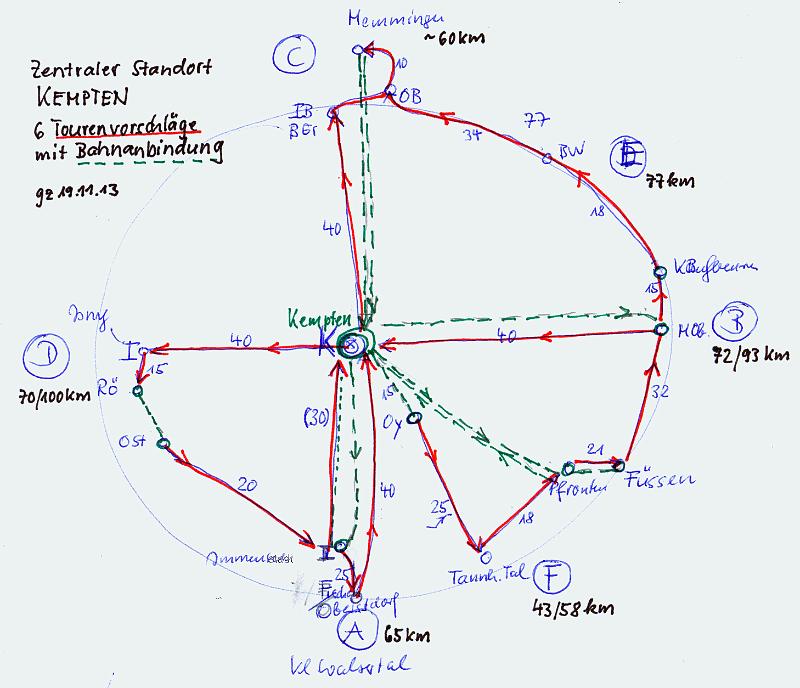 Memmingen
~60km
C
10
Zentraler Standort
KEMPTEN
6 Tourenvorschläge
mit Bahnanbindung
gz 19.11.13
OB
77
34
BW
E
77km
18
40
15
Kempten
K
40
MOb.
B
72/93 km
Isny
I
40
15
D
70/100km
RÖ
Ost
(30)
15
Oy
32
21
Pfronten
Füssen
20
40
25
18
I
25
Tannh. Tal
F
43/58 km
Oberstdorf
A
65km
Kl Walsertal